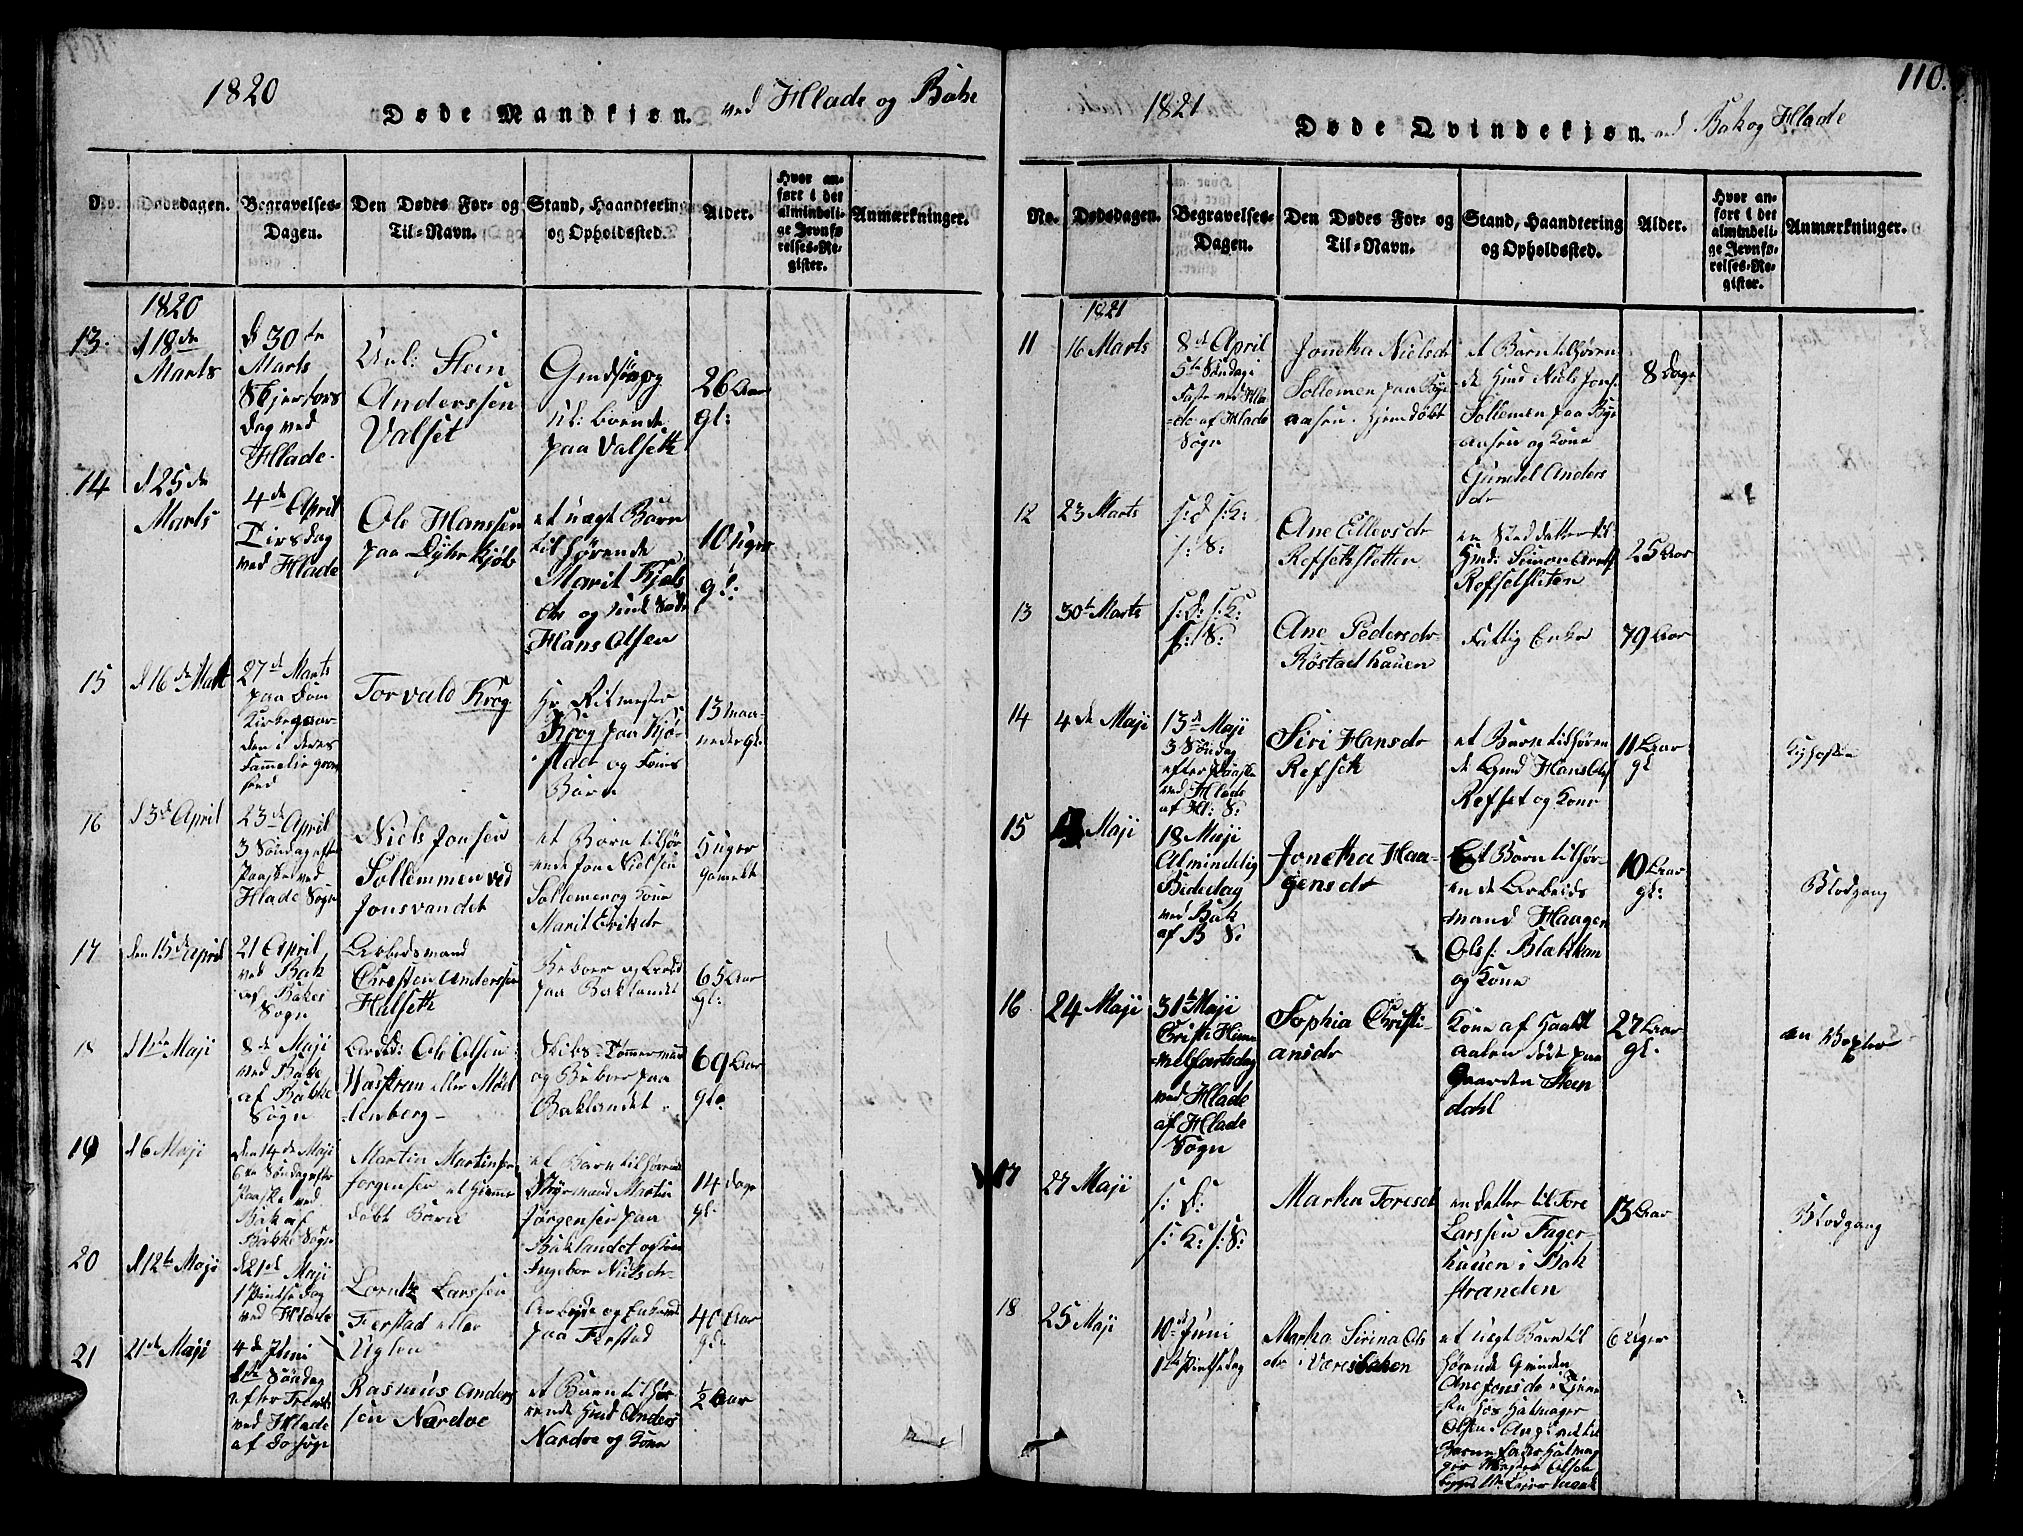 1820
Døde Mandkjøn. ved Hlade og Bake
No. Dødsdagen. Begravelses-Dagen. Den Dødes For- og Til-Navn. Stand, Haandtering og Opholdssted. Alder. Hvor anført i det almindelige Jevnførelses-Register. Anmærkninger.
1820
13. d 18de Marts
d 30te Marts Skjertorsdag ved Hlade.
Unk: Sten Anderssen Valset
paa Valseth
26 Aar gl:
14 d 25de Marts
4de April Tirsdag ved Hlade
Ole Hanssen paa
et uægt Barn tilhørende Marit
og
Hans Olsen
10 Uger gl:
15 d 16de Marts
27de Marts paa Dom Kirkegaarden i deres Fammelie
Torvald Krog
Hr. Ritmester Krog paa og Barn
13 Maaneder gl:
16 d 13de April
23de April 3 Søndag efter Paaske ved Hlade Sogn
Niels Jonsen Sollemmen ved Jonsvandet
et Barn tilhørende Jon Nielsen Sollemen og Kone Marit Eriksdr
5 uger gamelt
17 den 15de April
21 April ved Bak af Bakes Sogn
Arbedsmand Christen Anderssen Halseth
paa Baklandet
65 Aar gl:
18 d 1te Maji
8de Maji ved Bake af Bakke Sogn
Ole Olsen Wastran eller Møllenberg
Skibs-Tømmermand og paa Baklandet
69 Aar gl:
19 d 6 Maji
den 14de Maji Søndag efter Paaske ved Bak af Bakke Sogn
Martin Martinsen Jørgensen et Hjemmedøbt Barn
et Barn tilhørende Styrmand Martin Jørgensen paa Baklandet og Kone Ingebor Nielsdr
14 Dage gl:
20 d 12te Maji
d 21de Maji 1 Pintsedag ved Hlade
Lorntz Larssen Ferstad eller Uglen
paa Ferstad
40 Aar gl:
21 21de Maji
4de Juni Søndag efter ved Hlade af
Rasmus Anderssen Nardoe
et Barn tilhørende Hmd Anders Nardoe og Kone
½ Aar
110.
1821
Døde Qvindekjøn. ved Bak og Hlade
No. Dødsdagen. Begravelses-Dagen. Den Dødes For- og Til-Navn. Stand, Haandtering og Opholdssted. Alder. Hvor anført i det almindelige Jevnførelses-Register. Anmærkninger.
1821
11 16 Marts
8de April 5te Søndag i Faste ved Hlade af Hlade Sogn
Jonetha Nielsdr Sollemen paa Byeaasen. Hjemdøbt
et Barn tilhørende Hmd Niels Jons: Sollemen paa Byeaasen og Kone Gundel Andersdr
8 Dage
12 23 Marts
s: d s: K: s: S:
Ane Ellevsdr Refsethsletten
en Steddatter til Hmd: Simon Refsetsleten
25 Aar
13 30te Marts
s: D: s: K: s: S:
Ane Pedersdr Røstadhauen
Fattig Enke
79 Aar
14 4de Maji
13de Maji 3 Søndag efter Paaske ved Hlade af Hl: S:
Siri Hansdr Refseth
et Barn tilhørende Hmd Hans Ols: Refset og Kone
11 Aar gl
15 Maji
18 Maji Almindelig Bededag ved Bak af B S:
Jonetha Haagensdr
Et Barn tilhørende Arbeidsmand Haagen Olss: Blækkan og Kone
10 Aar gl:
Blodgang
16 24 Maji
31te Maji Cristi Himmelfartsdag ved Hlade af Hlade Sogn
Sophia Christiansdr
Kone af døde paa Gaarden Steendahl
27 Aar gl.
17 27 Maji
s: D: s: K: s: S:
Martha Toresdr
en datter til Tore Larssen Fagerhauen i Bakstranden
13 Aar
Blodgang
18 25 Maji
10de Juni 1te Pintsedag
Martha Sirina Olsdr i Væresbaken
et uægt Barn tilhørende Qvinden Ane Jonsdr
6 Uger